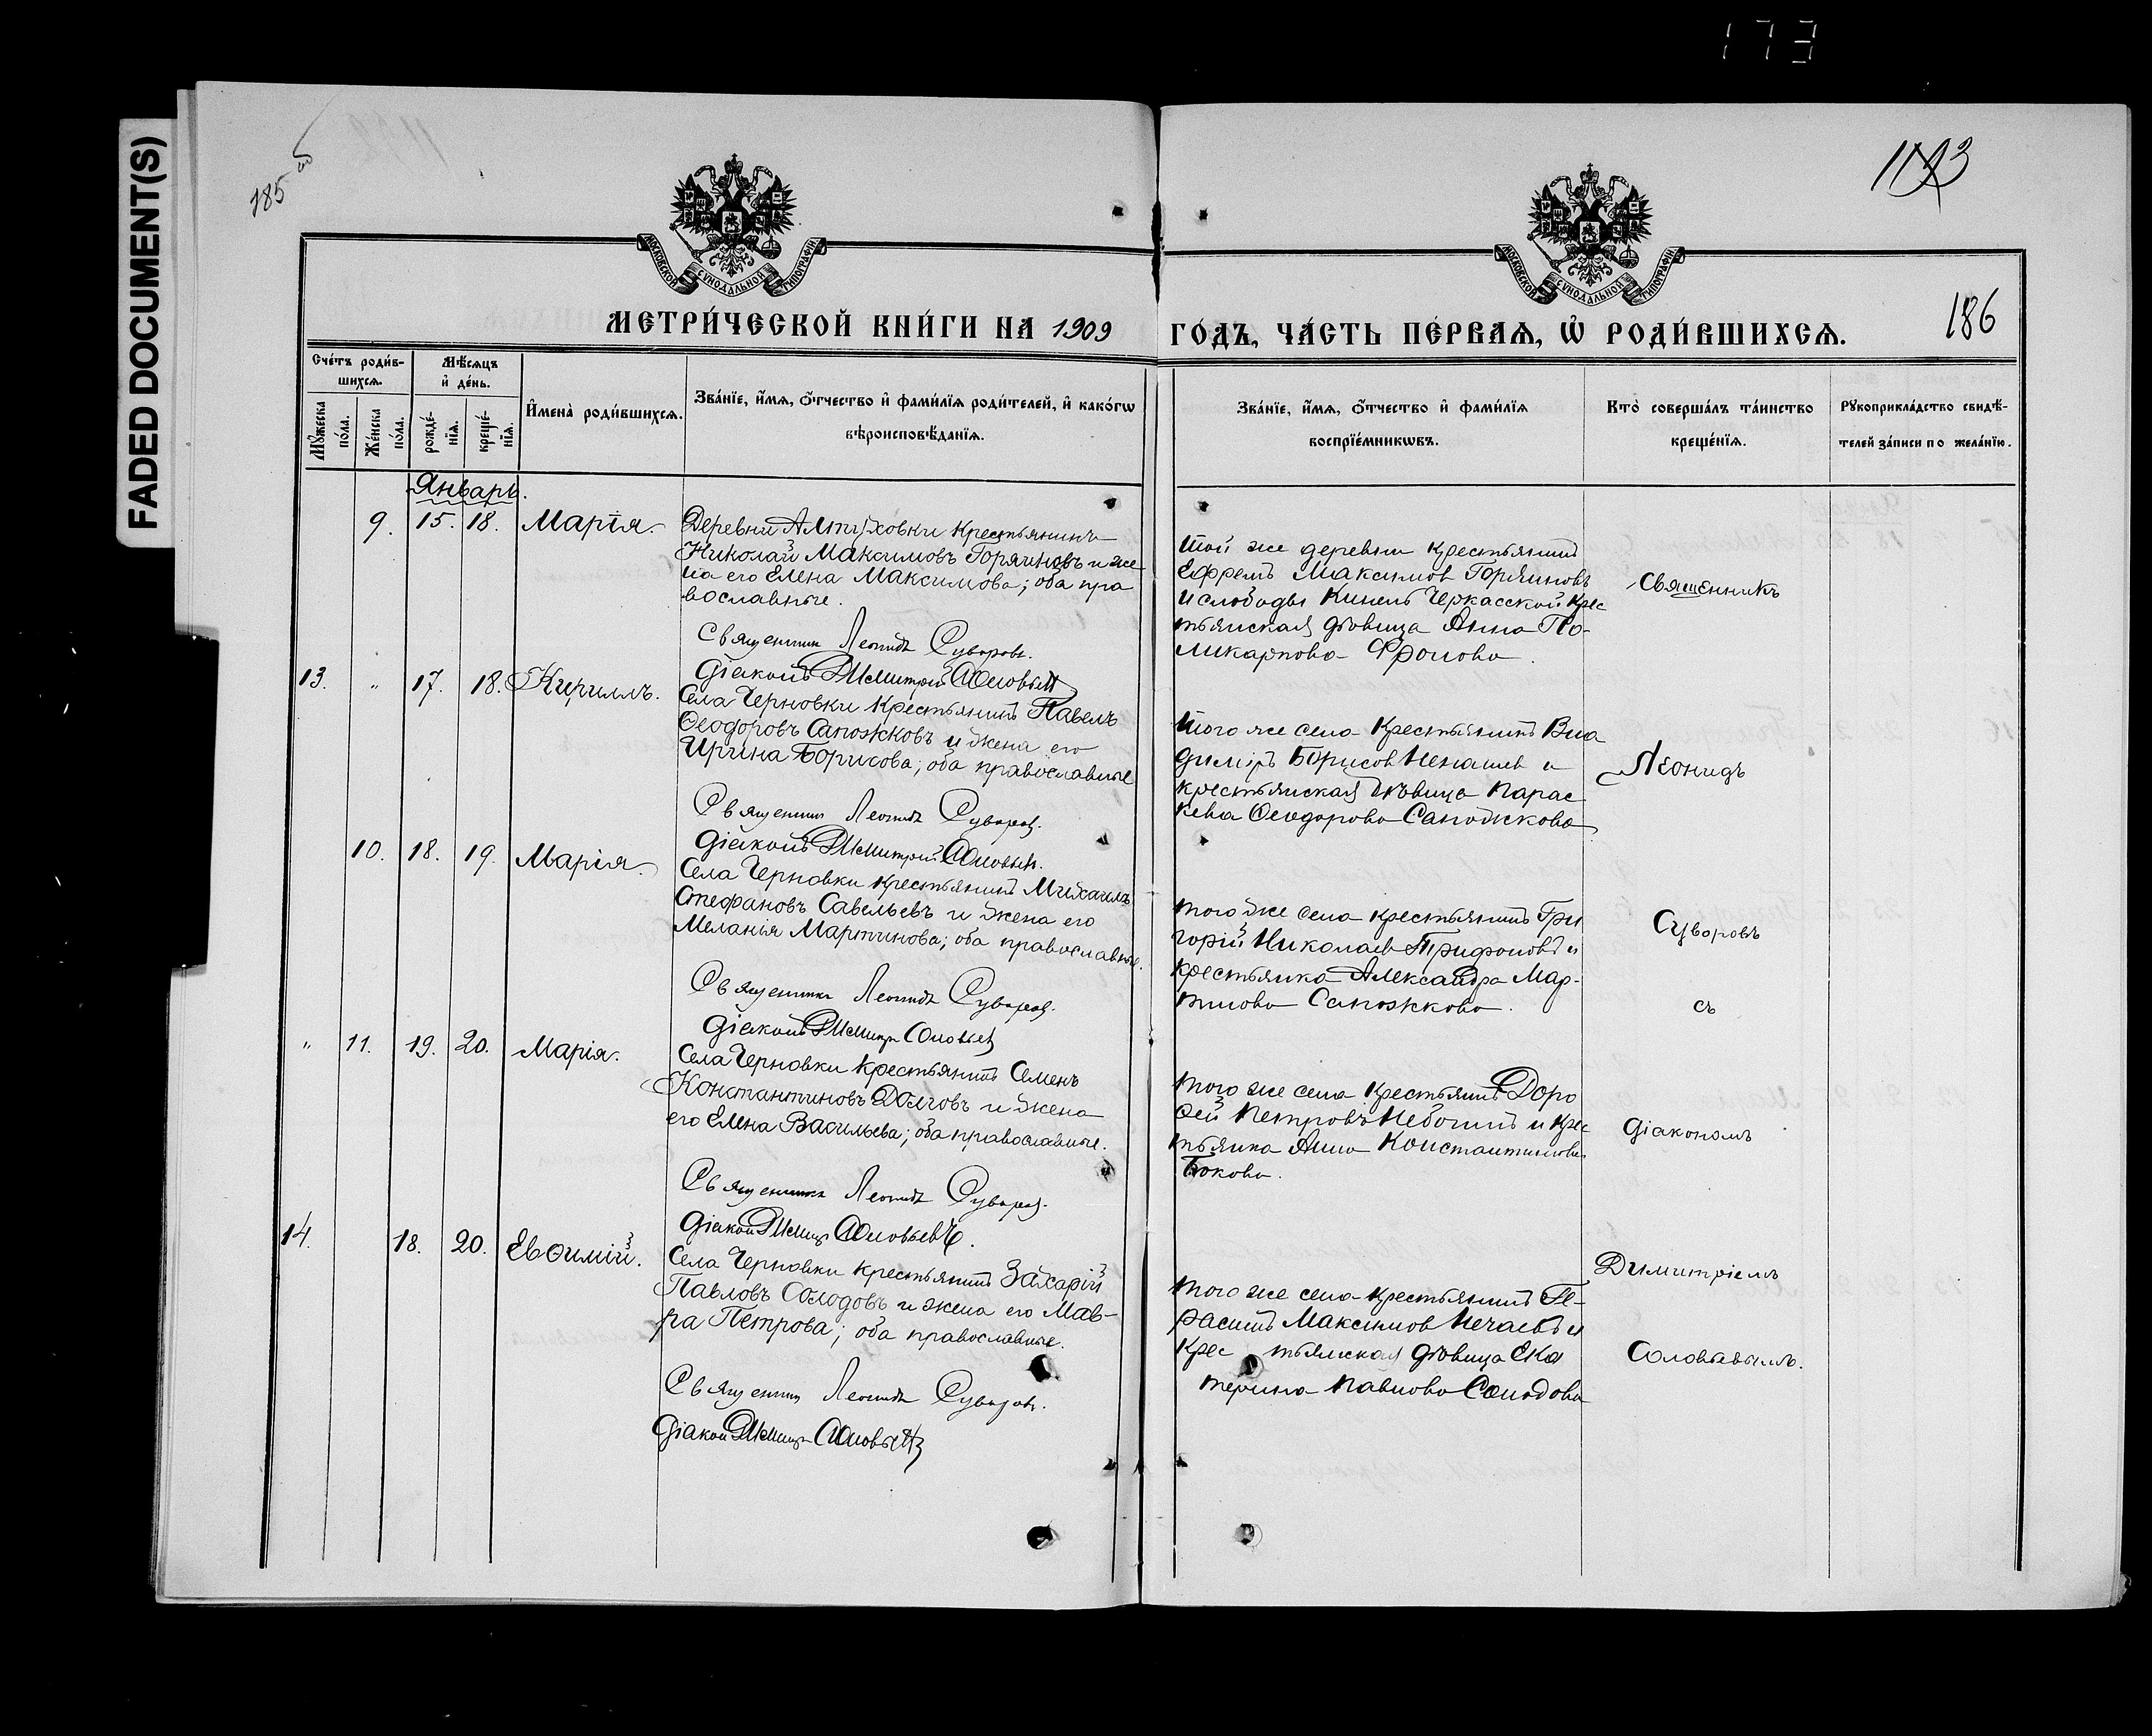 173
FADED DOCUMENT(S)
185 об
1173
186
МОСКОВСКОЙ СѴНОДАЛЬНОЙ ТИПОГРАФІИ.
МОСКОВСКОЙ СѴНОДАЛЬНОЙ ТИПОГРАФІИ.
МЕТРИ́ЧЕСКОЙ КНИ́ГИ НА 1909 ГО́ДЪ, ЧА́СТЬ ПЕ́РВАѦ, Ѽ РОДИ́ВШИХСѦ.
Сче́тъ роди́в-
шихсѧ.
Мѣ́сѧцъ
и҆ де́нь.
Му́жеска по́ла.
Же́нска по́ла.
рожде́-нїѧ.
креще́-нїѧ.
И҆мена̀ роди́вшихсѧ.
Зва́нїе, и҆́мѧ, ѻ҆́тчество и҆ фами́лїѧ роди́телей, и҆ како́гѡ
вѣроисповѣ́данїѧ.
Зва́нїе, и҆́мѧ, ѻ҆́тчество и҆ фами́лїѧ
воспрїе́мникѡвъ.
Кто̀ соверша́лъ та́инство
креще́нїѧ.
Рꙋкоприкла́дство свидѣ́-
телей за́писи по жела́нїю.
Январь.
9. 15. 18. Марія.
Деревни Алтуховки крестьянинъ
Николай Максимовъ Горяиновъ и же
на его Елена Максимова; оба пра
вославные.
Священникъ Леонидъ Суворовъ.
Діаконъ Димитрій Соловьевъ
Той же деревни крестьянинъ
Ефремъ Максимов Горяиновъ
и слободы Кинель Черкасской крес
тьянская дѣвица Анна По-
ликарпова Фролова.
13. " 17. 18. Кириллъ.
Села Черновки крестьянинъ Павелъ
Ѳеодоровъ Сапожковъ и жена его
Ирина Борисова; оба православные
Священникъ Леонидъ Суворовъ.
Діаконъ Димитрій Соловьевъ.
Того же села крестьянинъ Вла
димиръ Борисов Ненашев и
крестьянская дѣвица Парас
кева Ѳеодорова Сапожкова
10. 18. 19. Марія.
Села Черновки крестьянинъ Михаилъ
Стефановъ Савельевъ и жена его
Меланья Мартинова; оба православные.
Священникъ Леонидъ Суворовъ.
Діаконъ Димитр Соловьев
Того же села крестьянинъ Гри
горій Николаев Трифоновъ и
крестьянка Александра Мар-
тинова Сапожкова.
" 11. 19. 20. Марія.
Села Черновки крестьянинъ Семенъ
Константиновъ Долговъ и жена
его Елена Васильева; оба православные.
Священникъ Леонидъ Суворовъ.
Діакон Димитр Соловьевъ.
Того же села крестьянинъ Доро
фей Петровъ и крес
тьянка Анна Константинова
Бокова.
14. 18. 20. Евѳимій.
Села Черновки крестьянинъ Захарій
Павловъ Солодовъ и жена его Мав-
ра Петрова; оба православные.
Священникъ Леонидъ Суворовъ.
Діакон Димитр Соловьевъ
Того же села крестьянинъ Ге-
расимъ Максимов Нечаевъ и
крестьянская дѣвица Ека
терина Павлова Солодова
Священникъ
Леонидъ
Суворовъ
съ
діакономъ
Димитріемъ
Соловьевымъ.